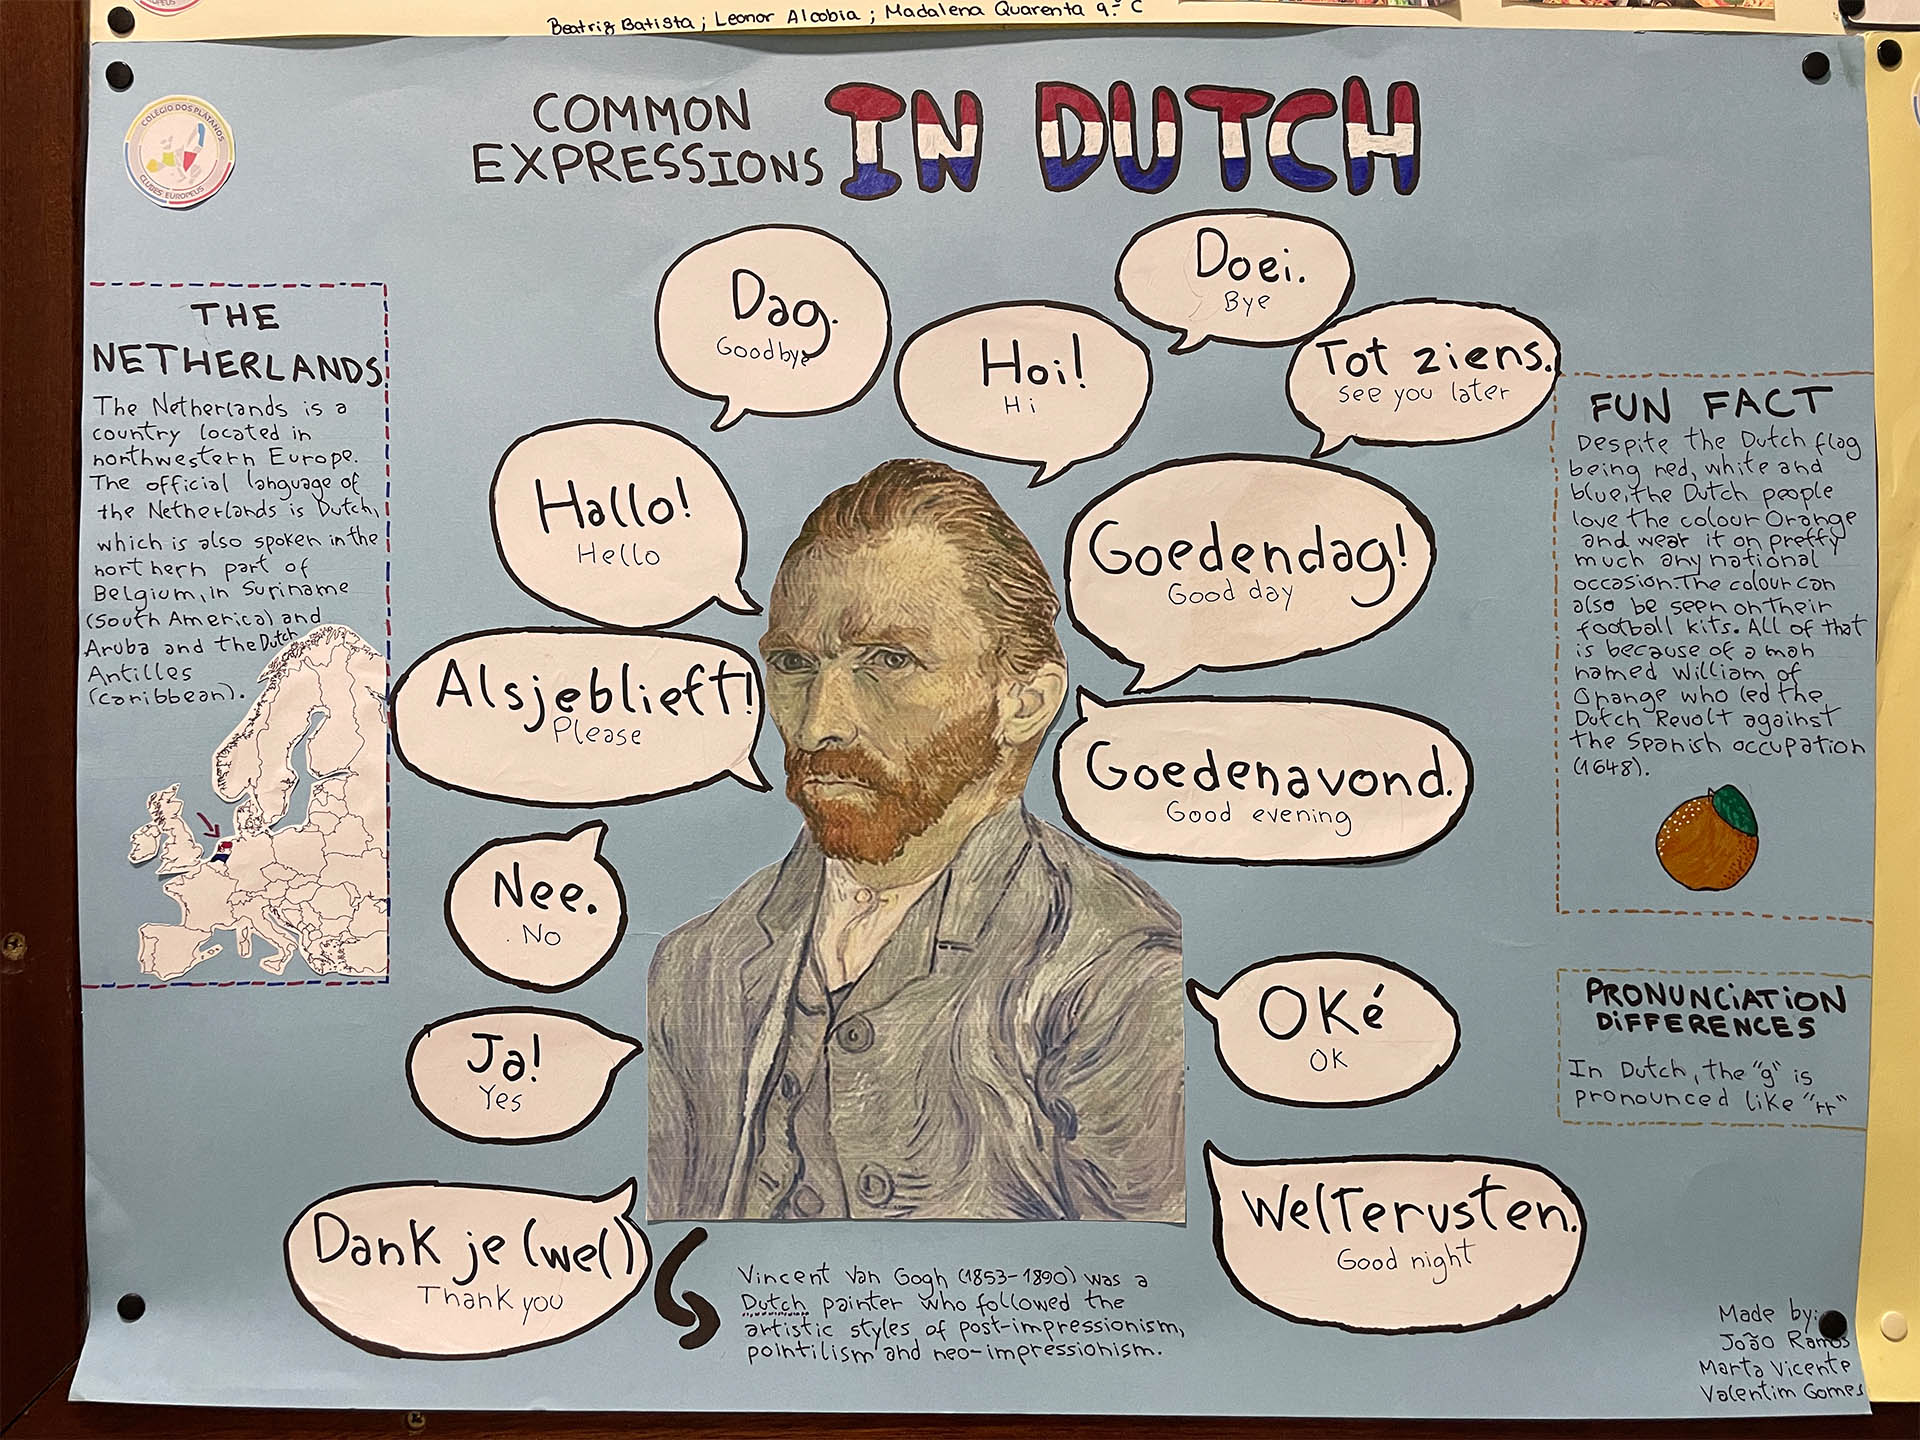 Beatriz Batista; Leonor Alcobia; Madalena Quarenta 9.º C
COLÉGIO DOS PLÁTANOS
CLUBES EUROPEUS
COMMON
EXPRESSIONS
IN DUTCH
THE
NETHERLANDS
The Netherlands is a
country located in
northwestern Europe.
The official language of
the Netherlands is Dutch,
which is also spoken in the
northern part of
Belgium, in Suriname
(South America) and
Aruba and the Dutch
Antilles
(Caribbean).
Dag.
Goodbye
Hoi!
Hi
Doei.
Bye
Tot ziens.
see you later
Hallo!
Hello
Goedendag!
Good day
Alsjeblieft!
Please
Goedenavond.
Good evening
Nee.
No
Ja!
Yes
OKé
OK
Dank je (wel)
Thank you
Welterusten.
Good night
Vincent Van Gogh (1853-1890) was a
Dutch painter who followed the
artistic styles of post-impressionism,
pointilism and neo-impressionism.
FUN FACT
Despite the Dutch flag
being red, white and
blue, the Dutch people
love the colour Orange
and wear it on pretty
much any national
occasion. The colour can
also be seen on their
football kits. All of that
is because of a man
named William of
Orange who led the
Dutch Revolt against
the Spanish occupation
(1648).
PRONUNCIATION
DIFFERENCES
In Dutch, the "g" is
pronounced like "rr"
Made by:
João Ramos
Marta Vicente
Valentim Gomes